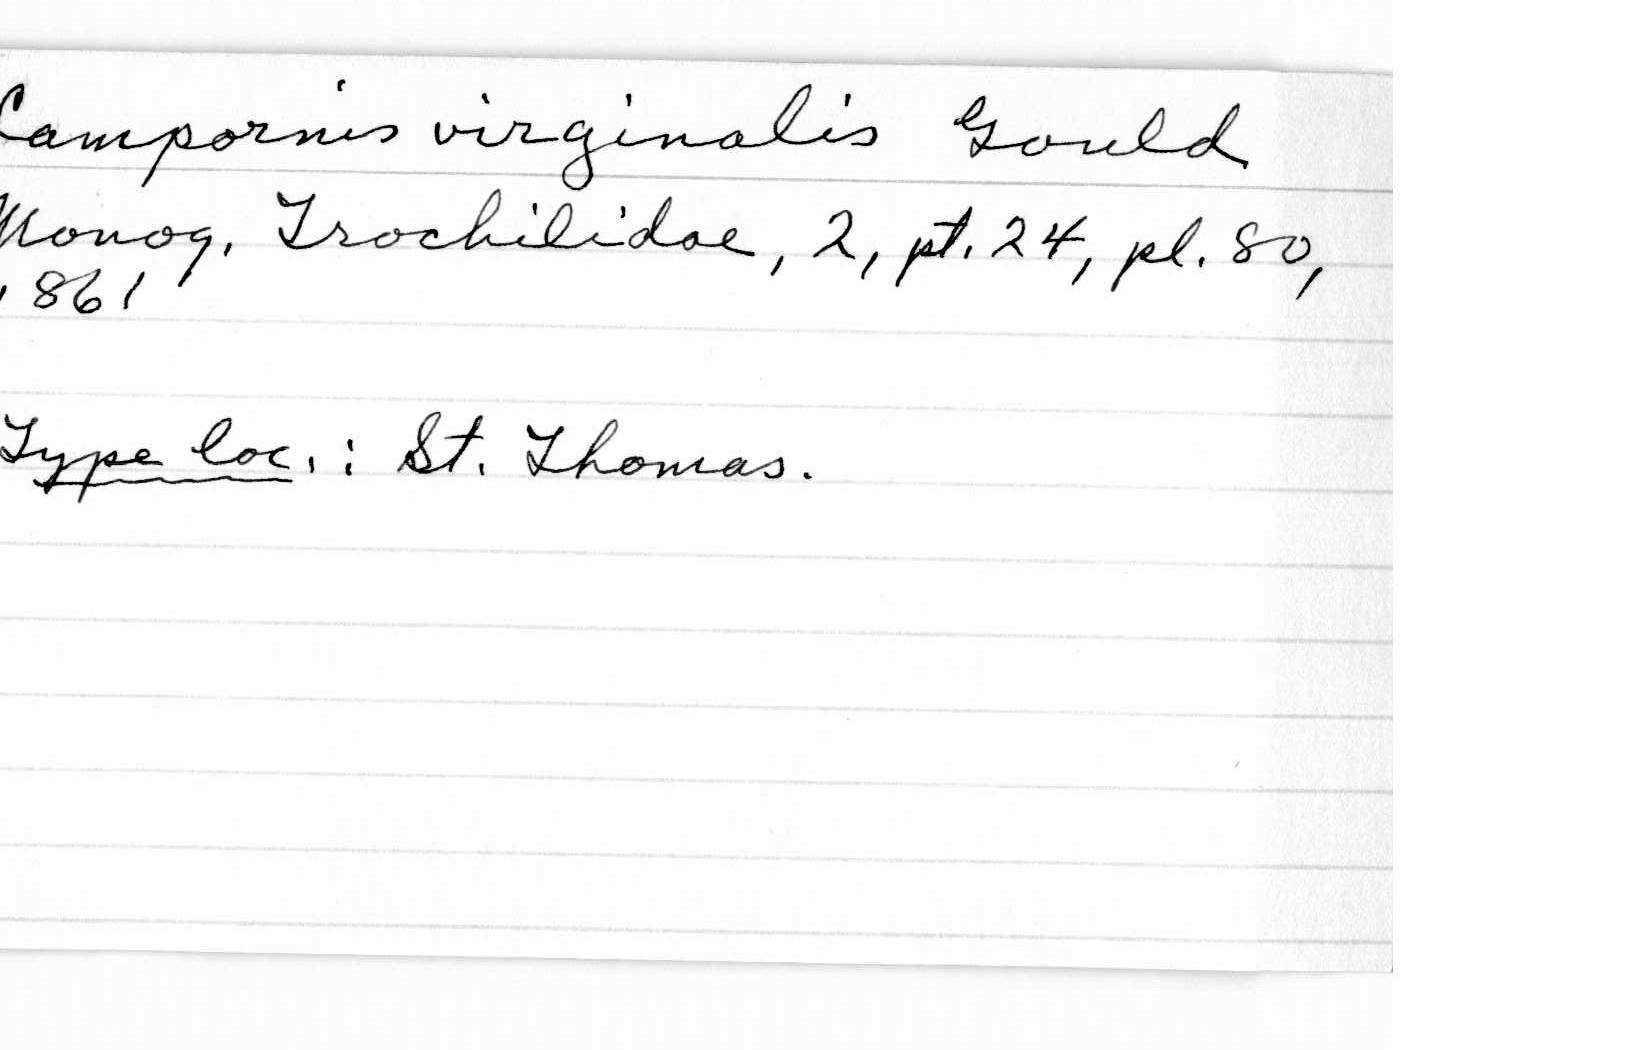 Lampornis virginalis Gould
Monog. Trochilidae, 2, pt. 24, pl. 80,
1861
Type loc. : St. Thomas.